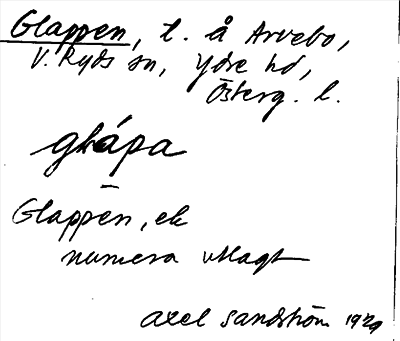 Glappen, t. å Arvebo,
V. Ryds sn, Ydre hd,
Österg. l.
glápa
Glappēn, ek
numera utlagt
Axel Sandström 1929